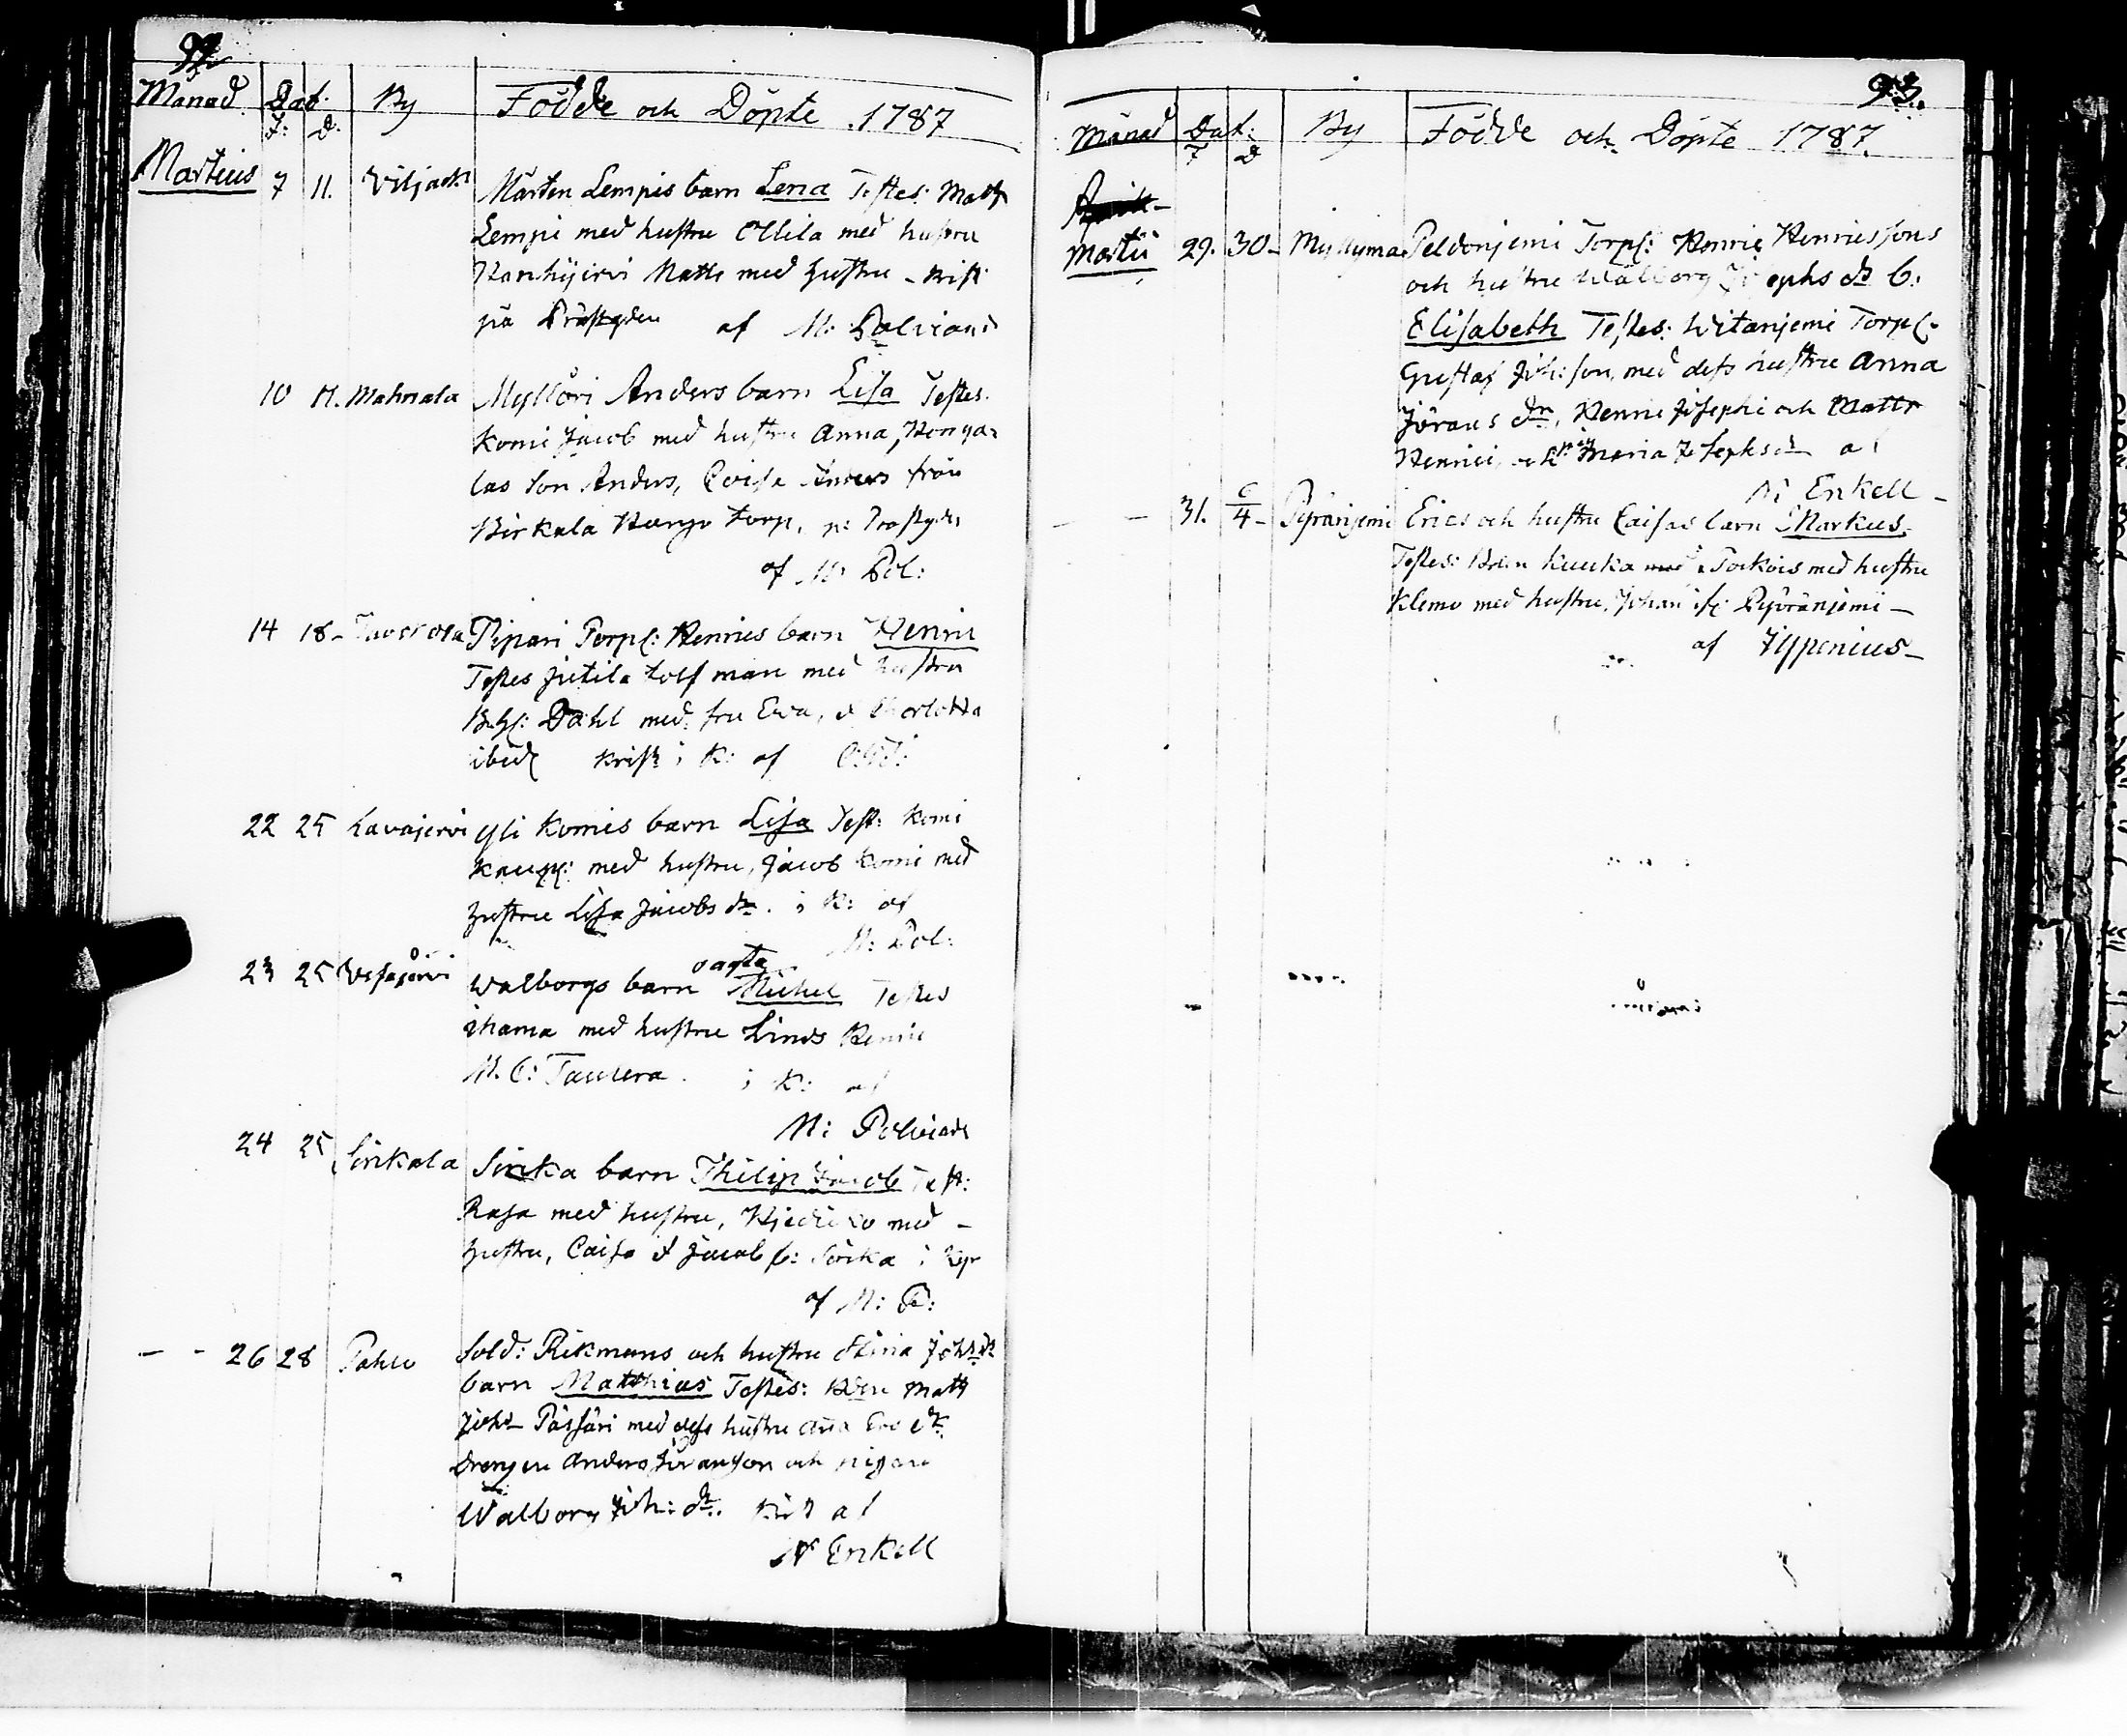 92
Månad Dat. By Födde och Döpte 1787
F: D.
Martius 7 11. Viljack: Mårten Lempis barn Lena Testes: Matts
Lempi med hustru Ollila med hustru
Matts med hustru - krist
på Prästgden af M: Polviand
10 11. Mahnala Myllöri Anders barn Lisa Testes.
Komi Jacob med hustru Anna, Honga-
las Son Anders, Caisa Anders från
Birkala Torp. p: Prästgden
af M: Pol:
14 18- Pipari Torp: Henrics barn Henric
Testes Jutila tolfman med hustru
Dahl med fru Ewa, d Charlotta
ibid krist i K: af
22 25 Lavajervi Yli Komis barn Lisa Test: Komi
med hustru, Jacob Komi med
hustru Lisa Jacobs dr. i K: af
M: Pol:
23 25 Vesajärvi Walborgs barn oagta Michel Testes
ihama med hustru Linds Henric
M. C: i K: af
M: Polviand
24 25 Sirikala Sirika barn Philip Jacob Test:
Rasa med hustru, med -
hustru, Caisa d Jacob s: Sirika i Kyr
af M: P:
- - 26 28 Pahlo Sold: Rikmans och hustru Stina Joh: dr
barn Matthias Testes: Bdn Matts
Joh: Pässäri med dess hustru Aña Eric dr
Drengen Anders Jöransson och pigan
Walborg Joh: dr. af
N Enkell
93.
Månad Dat: By Födde och Döpte 1787.
F D
Martii 29. 30- Myllyma Peldonjemi Torp: Henric Henricssons
och hustru Walborg Josephs dr b:
Elisabeth Testes: Witanjemi Torp:
Gustaf Joh: son, med dess hustru Anna
Jörans dr, Henric Josephi och Matts
Henrici, och Maria Josephs dr af
N: Enkell -
- - 31. C/4- Pyöränjemi Erics och hustru Caisas barn Markus.
Testes: Bden Kuuka Torkois med hustru
Klemo med hustru, Johan Pyöränjemi -
af Yppenius -